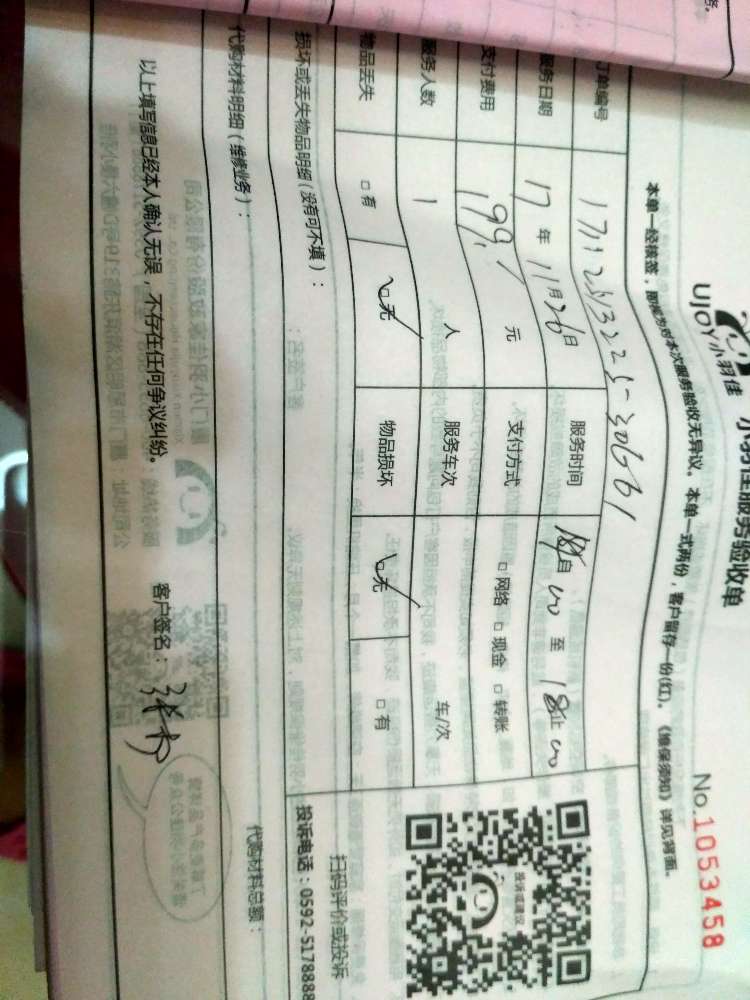 UJOY小羽佳 小羽佳服务验收单 No.10538458
本单一经核签，即视为对本次服务验收无异议。本单一式两份，客户留存一份(红)。《维保须知》详见背面。
订单编号
服务日期 17 年 11 月 26 日 服务时间 自 至 18 止
支付费用 199 元 支付方式 □ 网络 □ 现金 □ 转账
服务人数 1 人 服务车次 车/次
物品丢失 □ 有 □ 无 物品损坏 □ 无 □ 有
损坏或丢失物品明细(没有可不填)：
扫码评价或投诉
投诉电话：0592-5178888
投诉或建议
代购材料明细（维修业务）：
代购材料总额：
以上填写信息已经本人确认无误，不存在任何争议纠纷。 客户签名：